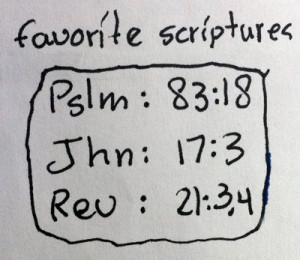 favorite scriptures
Pslm: 83:18
Jhn: 17:3
Rev : 21:3,4